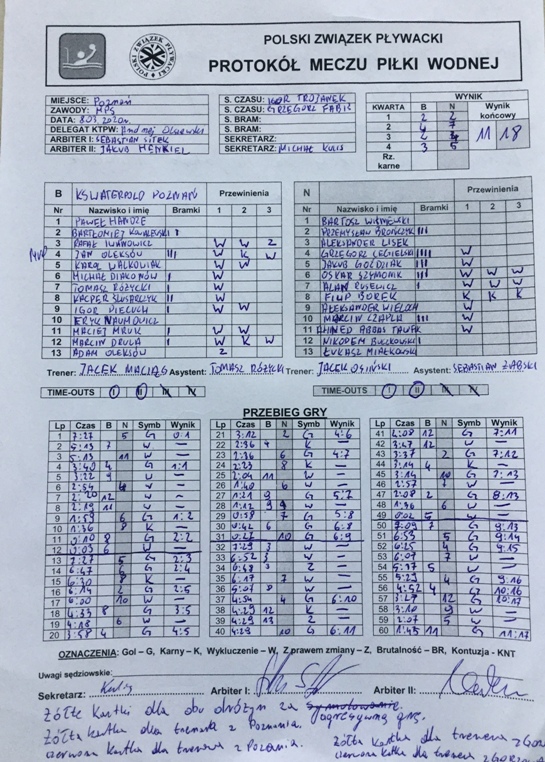 POLSKI ZWIĄZEK PŁYWACKI
POLSKI ZWIĄZEK PŁYWACKI
PROTOKÓŁ MECZU PIŁKI WODNEJ
MIEJSCE: Poznań
ZAWODY: MPS
DATA: 8.03.2020r.
DELEGAT KTPW:
ARBITER I: SEBASTIAN
ARBITER II: JAKUB HENKIEL
S. CZASU: IGOR TROJANEK
S. CZASU: GRZEGORZ FABIŚ
S. BRAM:
S. BRAM:
SEKRETARZ:
SEKRETARZ: MICHAŁ KULIS
WYNIK
KWARTA B N Wynik końcowy
1 2 2
2 4 7
3 2
4 3 5
Rz. karne
11 18
B KS WATERPOLO POZNAŃ Przewinienia
Nr Nazwisko i imię Bramki 1 2 3
1 PAWEŁ
2 BARTŁOMIEJ I
3 RAFAŁ IWANOWICZ W W Z
MVP 4 JAN OLEKSÓW III W K W
5 KAROL WALKOWIAK W W
6 MICHAŁ DIAKONÓW I W
7 TOMASZ RÓŻYCKI I W
8 KACPER ŚLUSARCZYK II W
9 IGOR PIECUCH I W W
10 ERYK NAUMOWICZ
11 MACIEJ MRUK I W W
12 MARCIN DRULA I W K W
13 ADAM OLEKSÓW Z
N Przewinienia
Nr Nazwisko i imię Bramki 1 2 3
1 BARTOSZ WIŚNIEWSKI
2 PRZEMYSŁAW III
3 ALEKSANDER LISEK
4 GRZEGORZ CEGIELSKI IIII W
5 JAKUB IIII W
6 OSKAR SZYMONIK III W W W
7 ALAN I W W W
8 FILIP BOREK K K K
9 ALEKSANDER W
10 MARCIN CZAPLA III W
11 AHMED ABBAS W
12 NIKODEM
13 ŁUKASZ MIAŁKOWSKI
Trener: JACEK MACIĄG Asystent: TOMASZ RÓŻYCKI Trener: JACEK OSIŃSKI Asystent: SEBASTIAN
TIME-OUTS I II III IV TIME-OUTS I II III IV
PRZEBIEG GRY
Lp Czas B N Symb Wynik
1 7:27 5 G 0:1
2 5:13 7 W —
3 5:13 11 W —
4 3:40 4 G 1:1
5 3:22 9 W —
6 2:54 W —
7 2:20 12 W —
8 2:19 11 W —
9 1:59 6 G 1:2
10 1:36 8 K —
11 0:10 8 G 2:2
12 0:03 6 W —
13 7:27 5 G 2:3
14 6:47 6 G 2:4
15 6:30 8 K —
16 6:14 2 G 2:5
17 6:00 10 W —
18 4:33 8 G 3:5
19 4:18 6 W —
20 3:58 4 G 4:5
Lp Czas B N Symb Wynik
21 3:12 2 G 4:6
22 2:36 4 W —
23 2:36 6 G 4:7
24 2:23 8 K —
25 2:04 11 W —
26 1:40 6 W —
27 1:21 9 G 5:7
28 1:12 W —
29 0:58 7 G 5:8
30 0:42 6 G 6:8
31 0:27 10 G 6:9
32 7:29 3 W —
33 6:52 3 W —
34 3 Z —
35 6:17 7 W —
36 5:07 8 W —
37 4:54 4 G 6:10
38 4:29 12 K —
39 4:29 13 Z —
40 4:29 10 G 6:11
Lp Czas B N Symb Wynik
41 4:08 12 G 7:11
42 3:47 12 W —
43 3:37 2 G 7:12
44 3:14 4 K —
45 3:14 10 G 7:13
46 2:57 7 W —
47 2:08 2 G 8:13
48 1:46 6 W —
49 0:02 5 W —
50 7:09 7 G 9:13
51 6:53 5 G 9:14
52 6:25 4 G 9:15
53 6:09 7 W —
54 5:17 5 W —
55 5:29 4 G 9:16
56 4:52 4 G 10:16
57 3:27 12 G 10:17
58 3:10 9 W —
59 2:07 5 W —
60 1:45 11 G 11:17
OZNACZENIA: Gol – G, Karny – K, Wykluczenie – W, Z prawem zmiany – Z, Brutalność – BR, Kontuzja - KNT
Uwagi sędziowskie:
Sekretarz: Arbiter I: Arbiter II:
Żółte kartki dla obu drużyn za agresywną grę.
Żółta kartka dla trenera z Poznania.
czerwona kartka dla trenera z Poznania.
żółta kartka dla trenera z
czerwona kartka dla trenera z